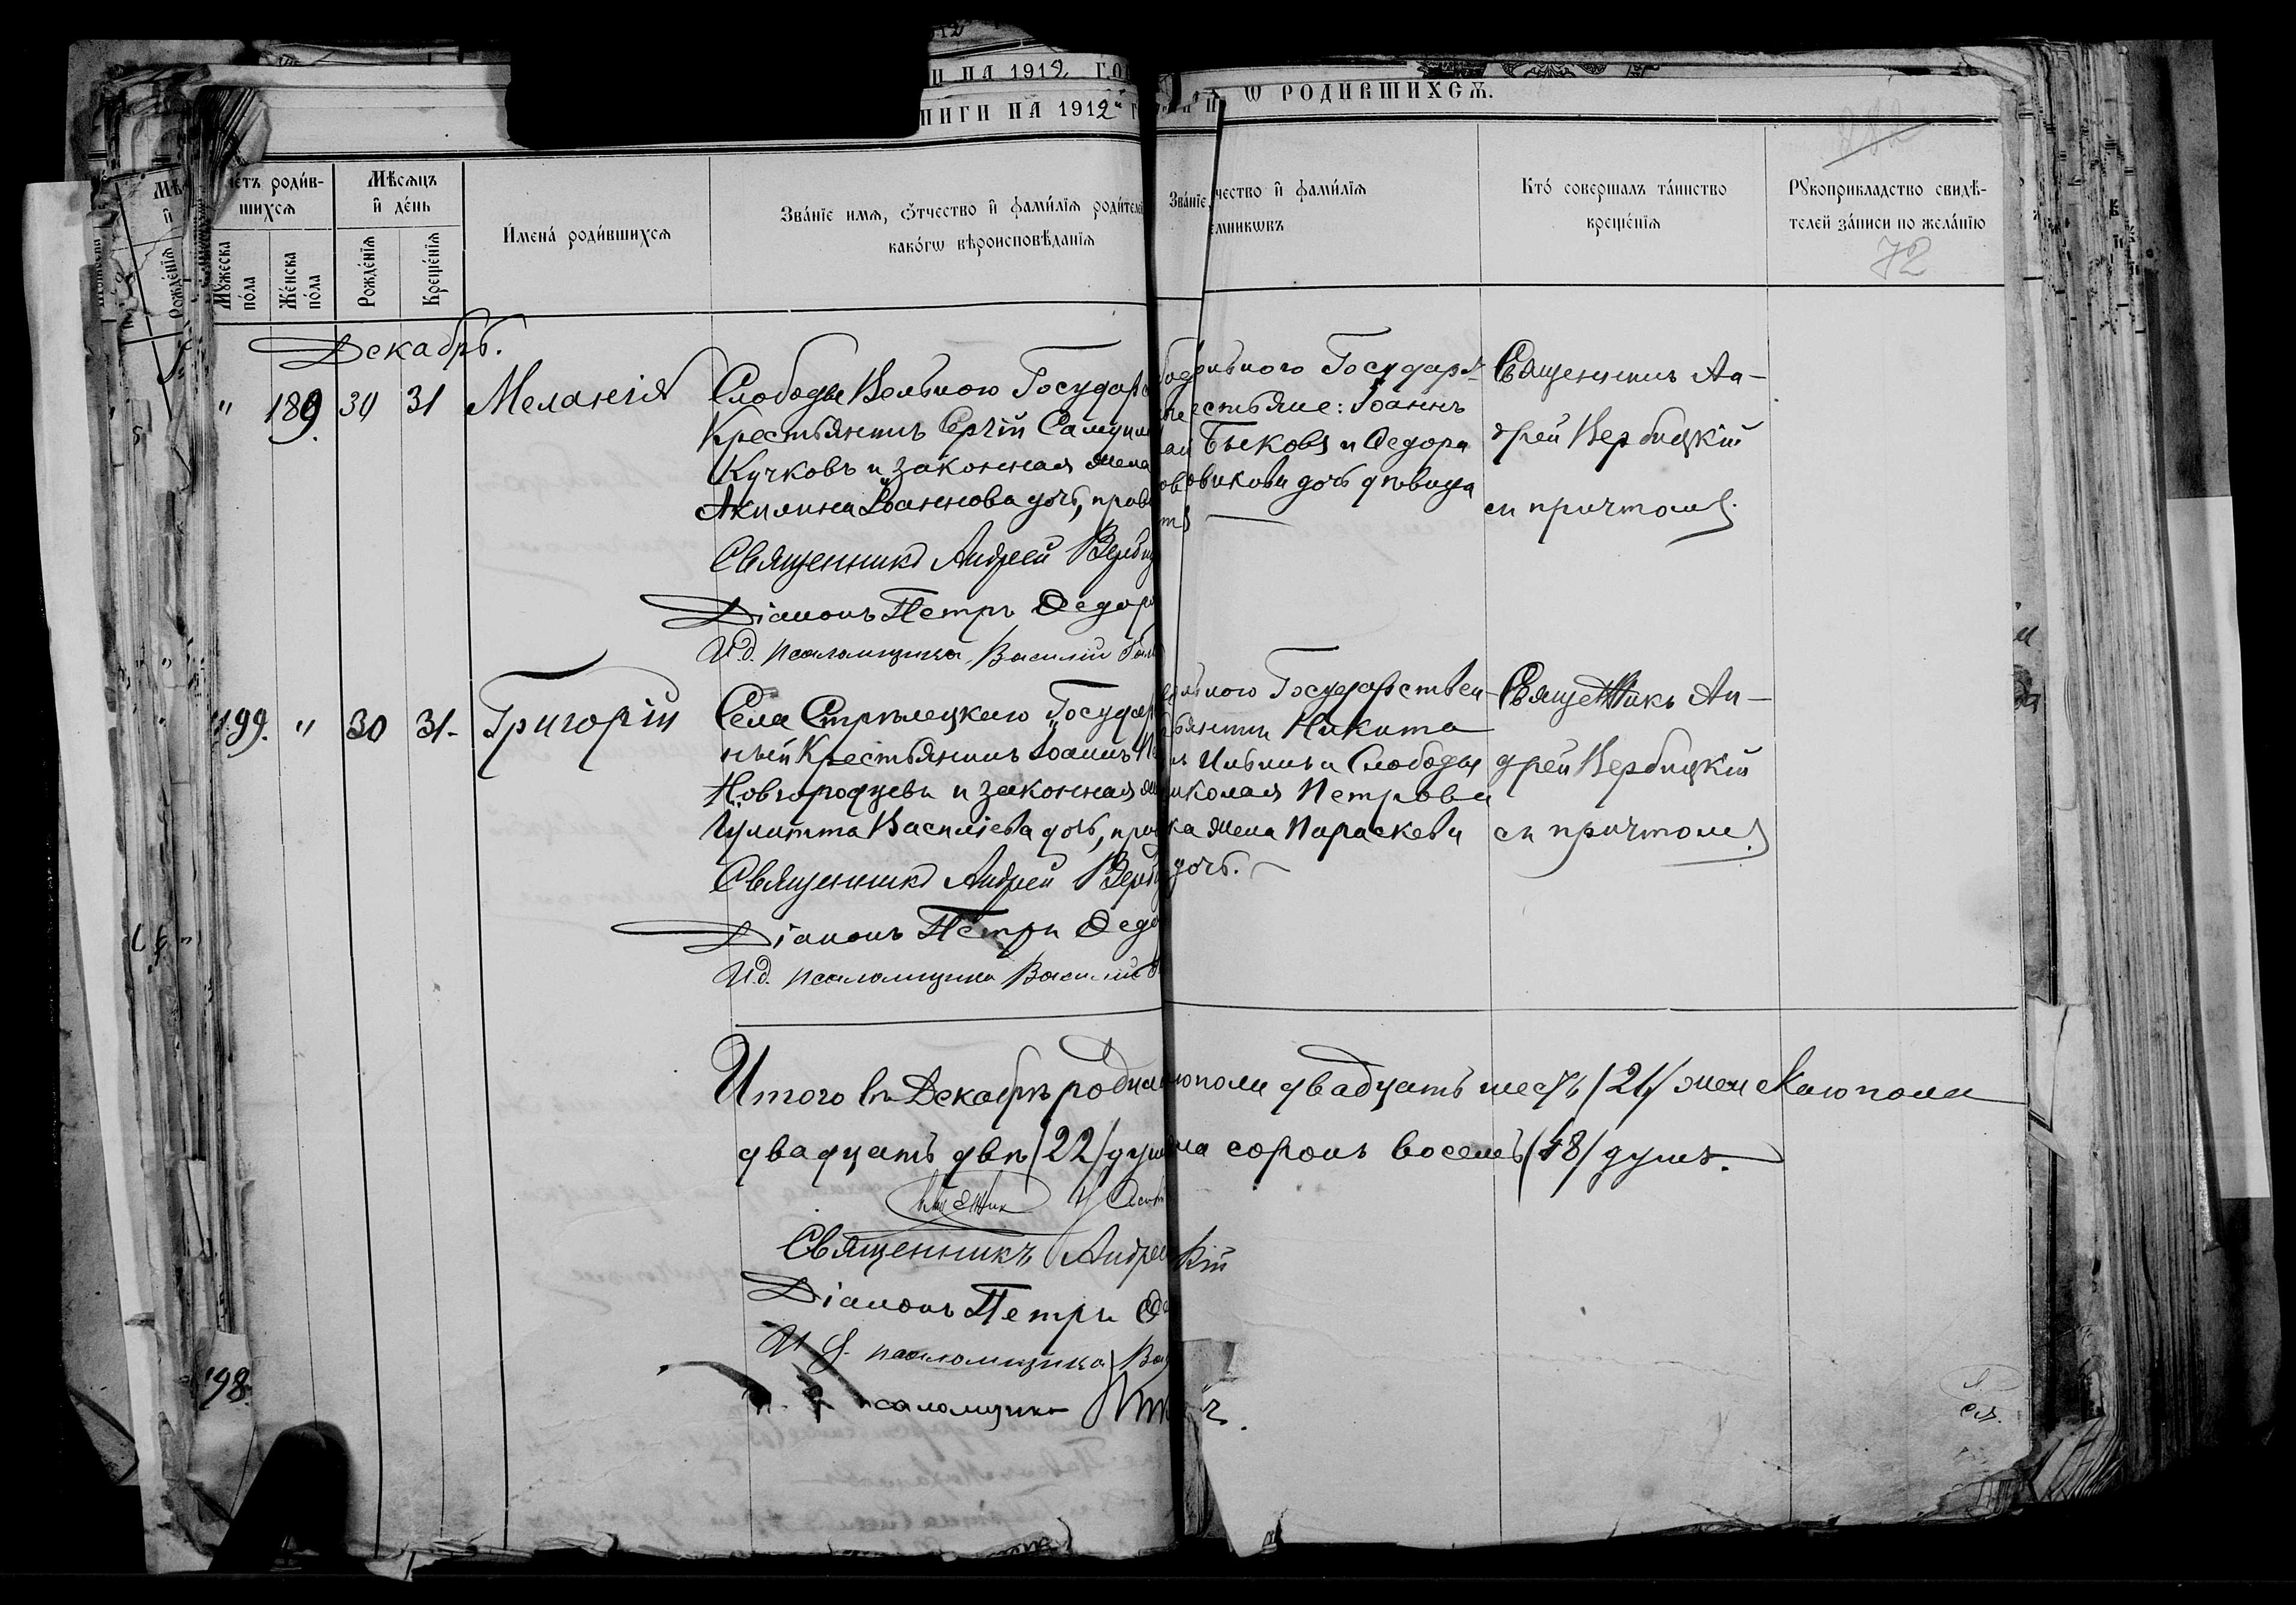 И НА 1912 ГО
НИГИ НА 1912 г
Ѡ РОДИВШИХСЯ.
четъ роди́в-
шихсѧ
Мѣсѧцъ
и҆ де́нь
Му́жеска
по́ла
Же́нска
по́ла
Рожде́нїѧ
Креще́нїѧ
И҆мена̀ роди́вшихсѧ
Зва́нїе имѧ, ѻ҆́тчество и҆ фами́лїѧ роди́телей
како́гѡ вѣроисповѣ́данїѧ
Зва́нїе
чество и҆ фами́лїѧ
емникѡвъ
Кто̀ соверша́лъ та́инство
креще́нїѧ
Рꙋкоприкла́дство свидѣ́-
телей за́писи по жела́нїю
72
Декабрь.
" 189. 30 31 Меланія
Слободы Вольного Государс
Крестьянинъ Сергій Самуил
Кучковъ и законная жена
Акилина Іоаннова дочь, прав
Священникъ Андрей Верби
Діаконъ Петръ Ѳедоро
И.д. псаломщика Василій
ольного Государ-
естьяне: Іоаннъ
Быковъ и Ѳедора
овикова дочь дѣвица
Священникъ Ан-
дрей Вербицкій
съ причтомъ.
199. " 30 31. Григорій
Села Стрѣлецкаго Государ
ный Крестьянинъ Іоаннъ
Новгородцевъ и законная ж
Іулитта Василіева дочь, пра
Священникъ Андрей Верби
Діаконъ Петръ Ѳедо
И.д. псаломщика Василій
льного Государствен-
ьянинъ Никита
Ильинъ и Слободы
иколая Петрова
ка жена Параскева
дочь.
Священникъ Ан-
дрей Вербицкій
съ причтомъ.
Итого въ Декабрѣ родил пола двадцать шесть /26/ женскаго пола
двадцать двѣ /22/ душ а сорокъ восемь /48/ душъ.
Священникъ Андрей кій
Діаконъ Петръ Ѳе
И д. псаломщика Ва
псаломщикъ
198.